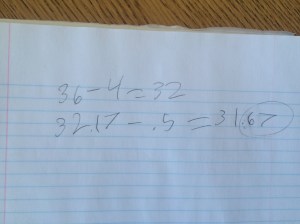 36-4=32
32.17-.5=31.67